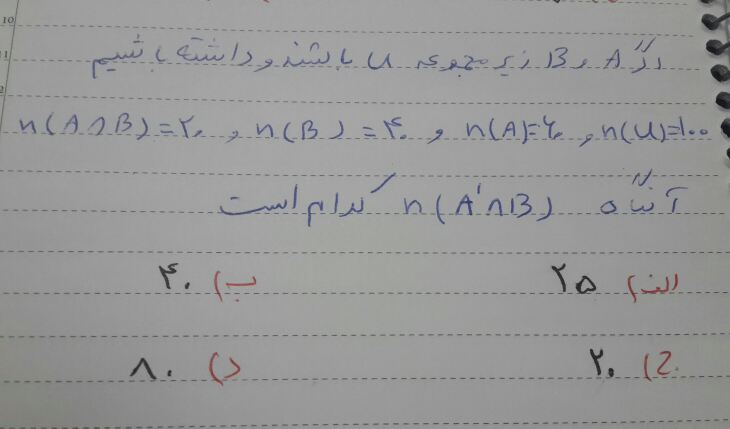 اگر A و B زیر مجموعه U باشند و داشته باشیم
n(U)=۱۰۰ , n(A)=۶۰ و n(B)=۴۰ و n(A∩B)=۲۰
آنگاه n(A'∩B) کدام است
الف) ۲۵ ب) ۴۰
ج) ۲۰ د) ۸۰